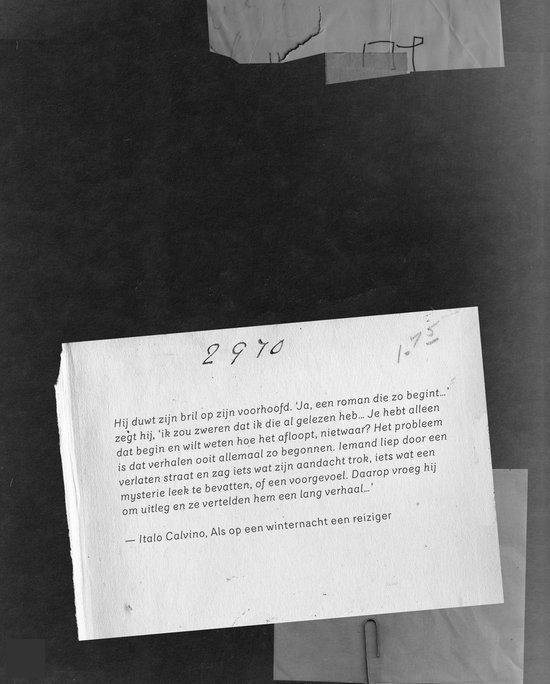 2970
1.75
Hij duwt zijn bril op zijn voorhoofd. 'Ja, een roman die zo begint...'
zegt hij, 'ik zou zweren dat ik die al gelezen heb... Je hebt alleen
dat begin en wilt weten hoe het afloopt, nietwaar? Het probleem
is dat verhalen ooit allemaal zo begonnen. Iemand liep door een
verlaten straat en zag iets wat zijn aandacht trok, iets wat een
mysterie leek te bevatten, of een voorgevoel. Daarop vroeg hij
om uitleg en ze vertelden hem een lang verhaal...'
— Italo Calvino, Als op een winternacht een reiziger